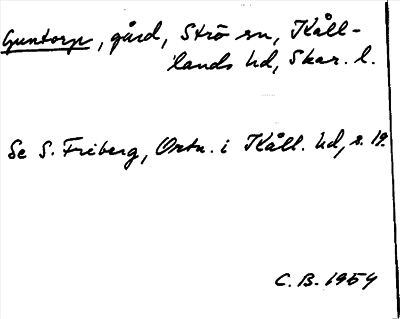 Guntorp, gård, Strö sn, Kåll-
lands hd, Skar. l.
Se S. Friberg, Ortn. i Kåll. hd, s. 19.
C. B. 1959